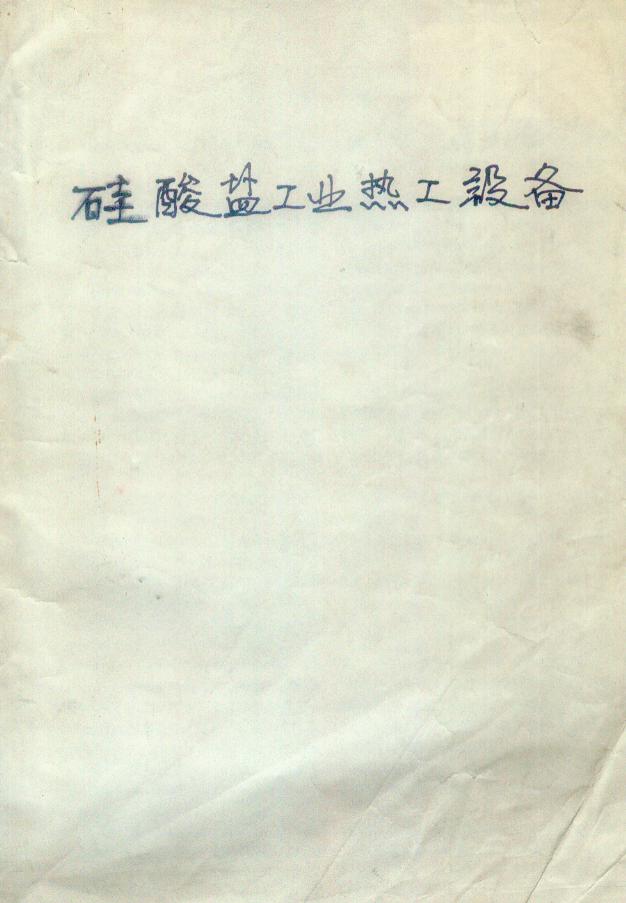 硅酸盐工业热工設备